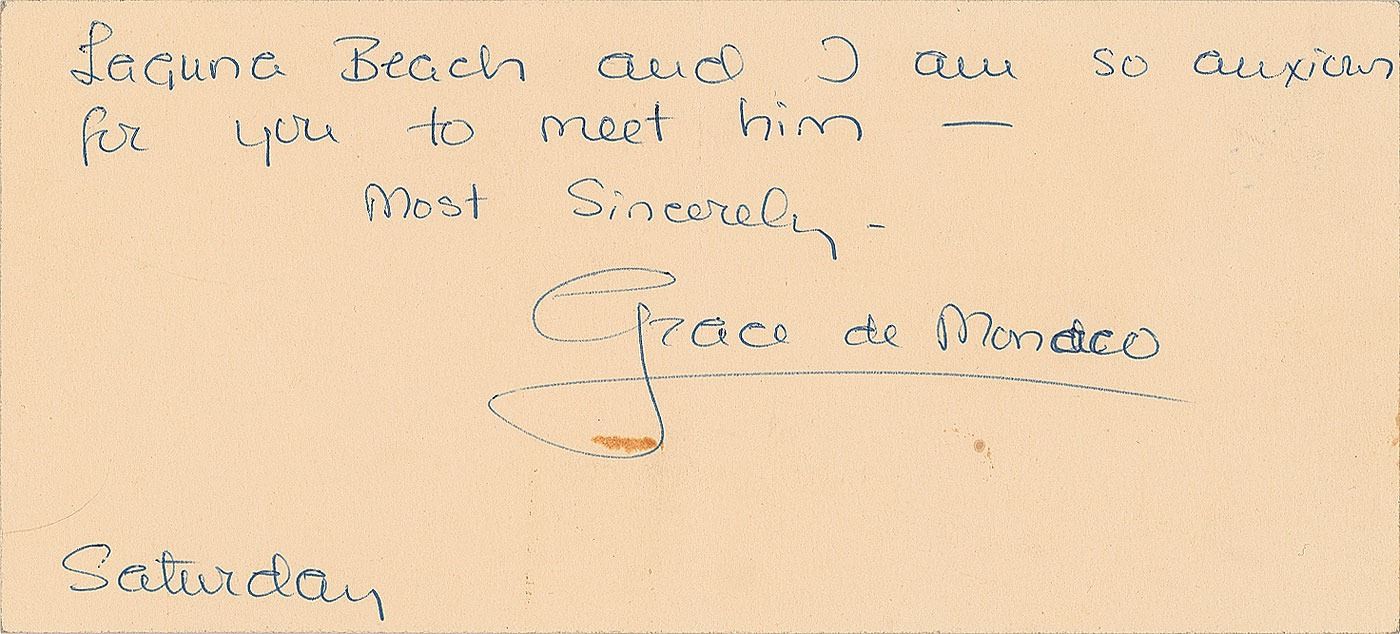 Laguna Beach and I am so anxious
for you to meet him —
Most Sincerely -
Grace de Monaco
Saturday